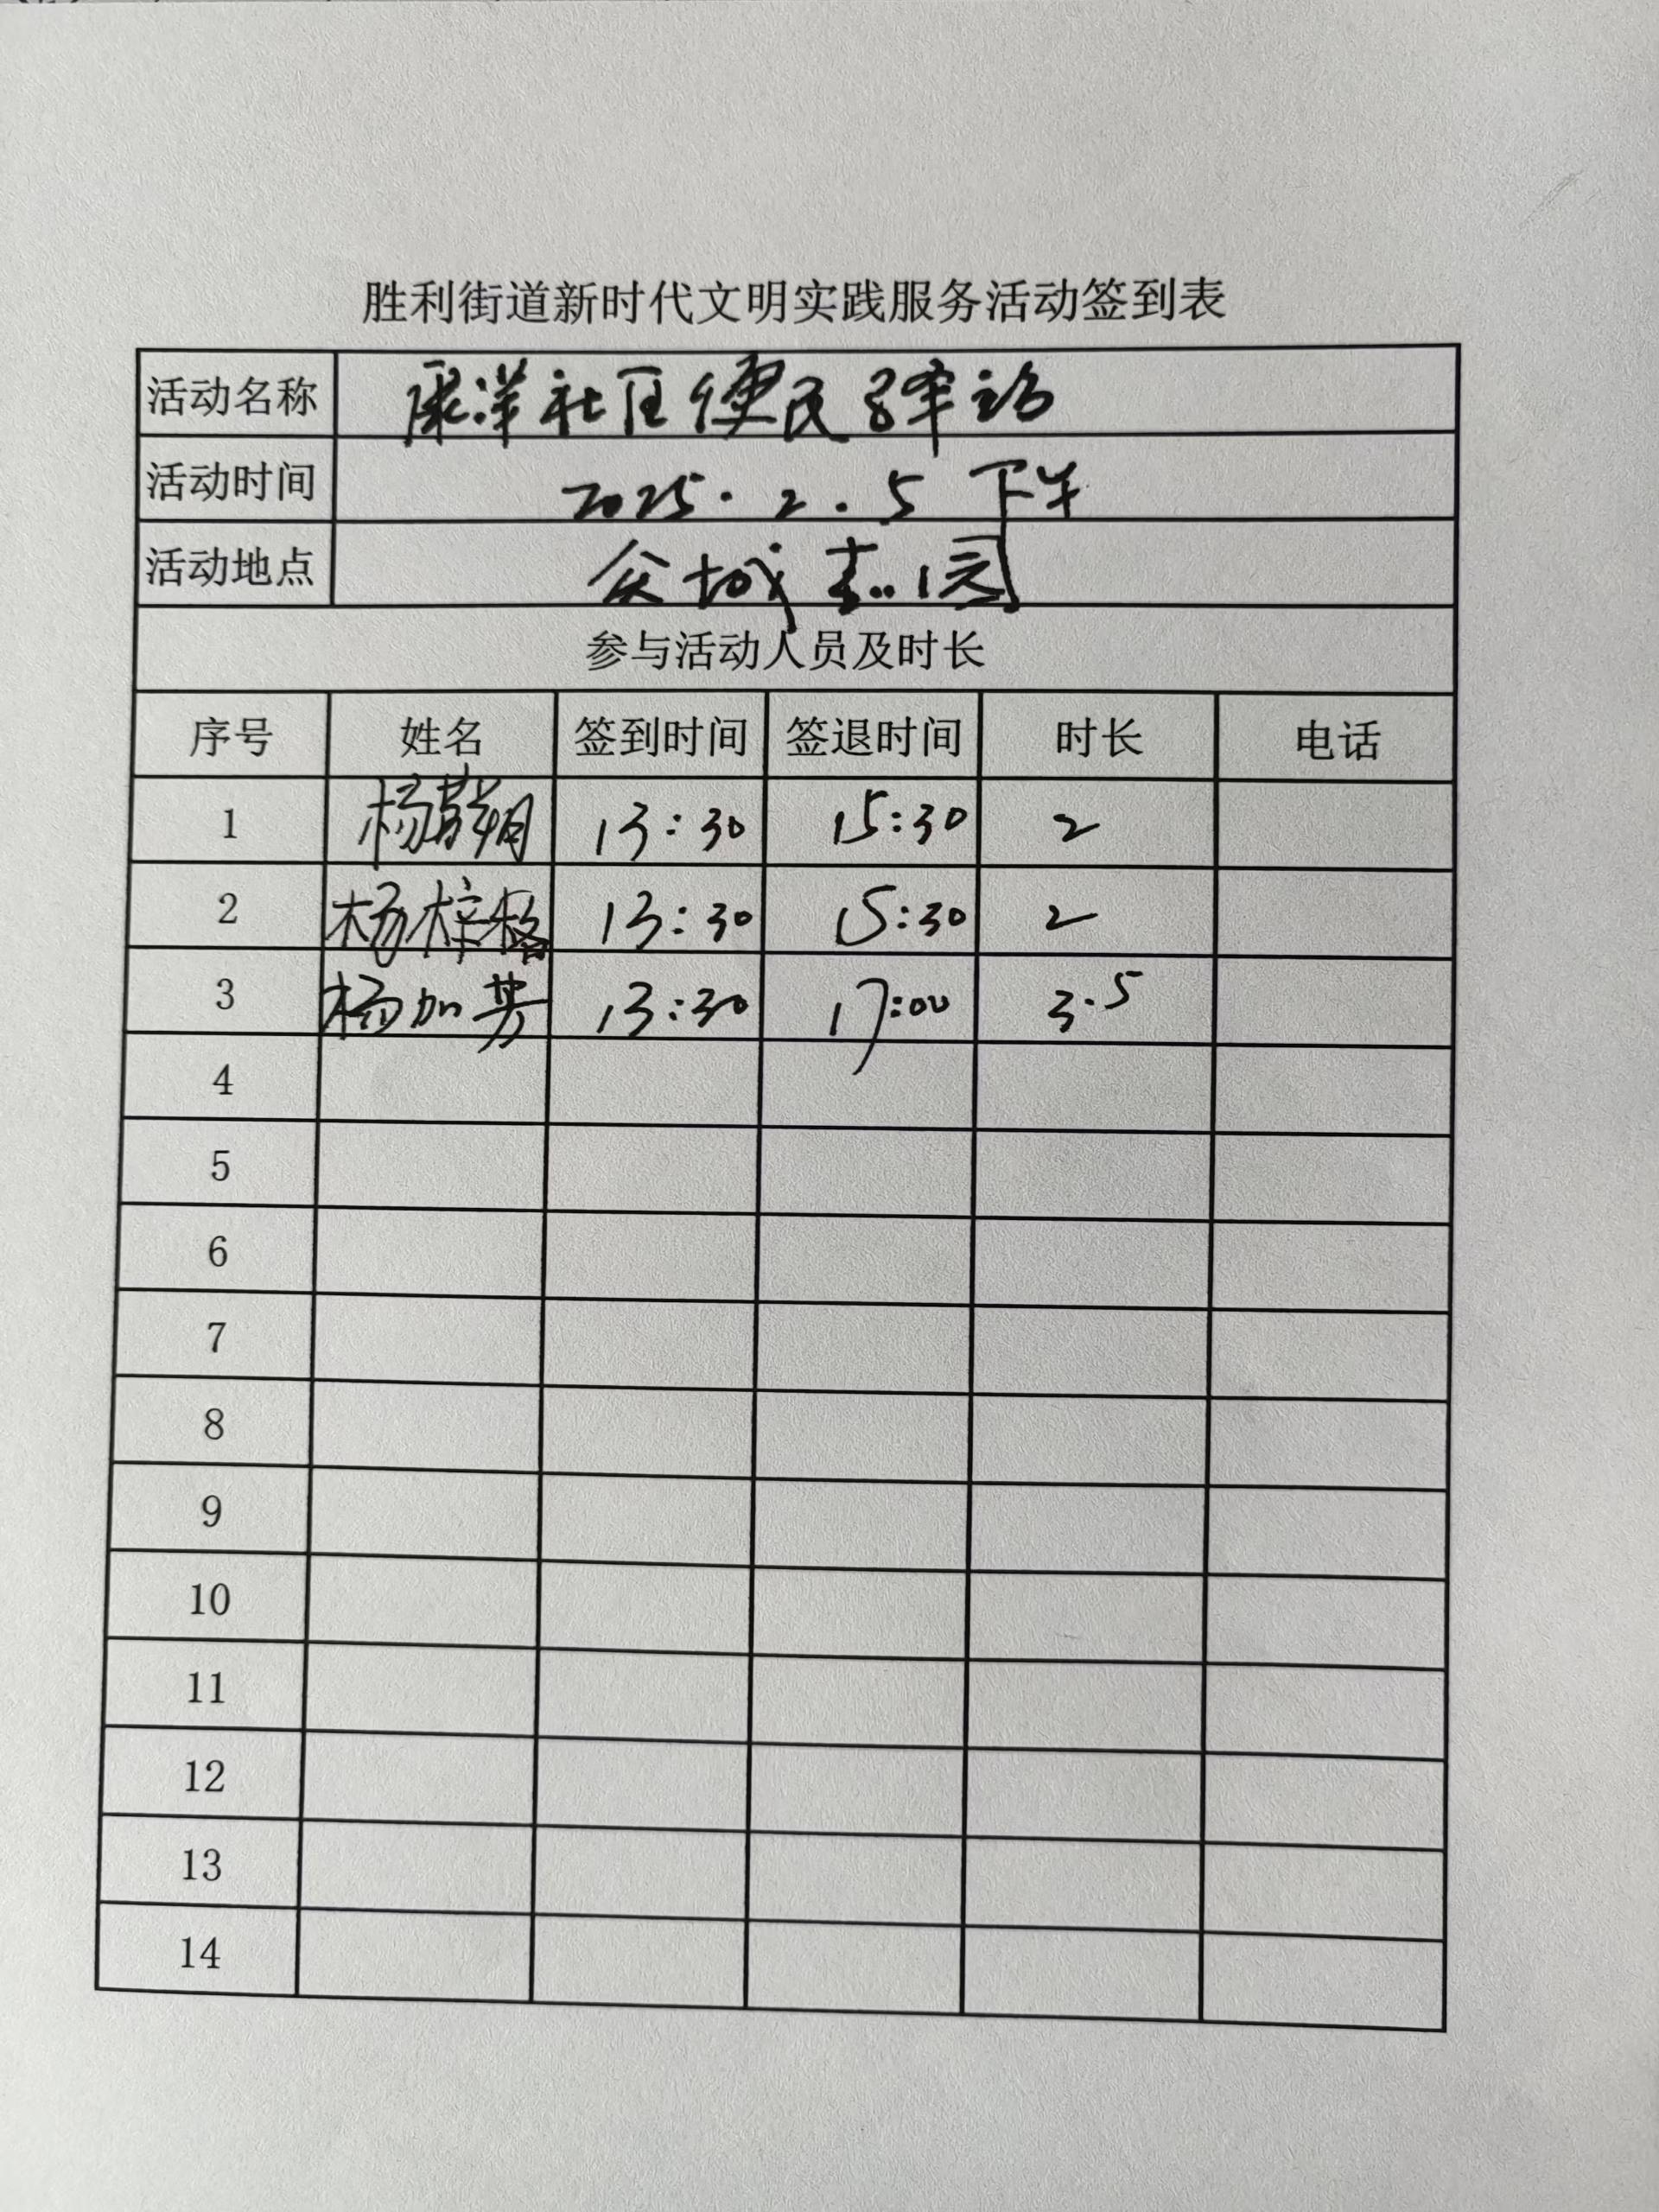 胜利街道新时代文明实践服务活动签到表
活动名称 康洋社区便民驿站
活动时间 2025.2.5 下午
活动地点
参与活动人员及时长
序号 姓名 签到时间 签退时间 时长 电话
1 杨 13:30 15:30 2
2 杨梓 13:30 15:30 2
3 杨加 13:30 17:00 3.5
4
5
6
7
8
9
10
11
12
13
14